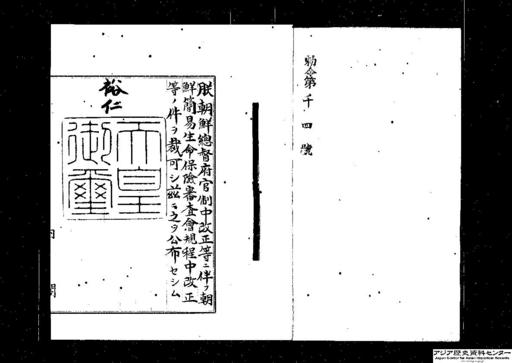 勅令第千四號
朕朝鮮總督府官制中改正等ニ伴フ朝
鮮簡易生命保險審査會規程中改正
等ノ件ヲ裁可シ茲ニ之ヲ公布セシム
裕仁
天皇
御璽
内閣
アジア歴史資料センター
Japan Center for Asian Historical Records